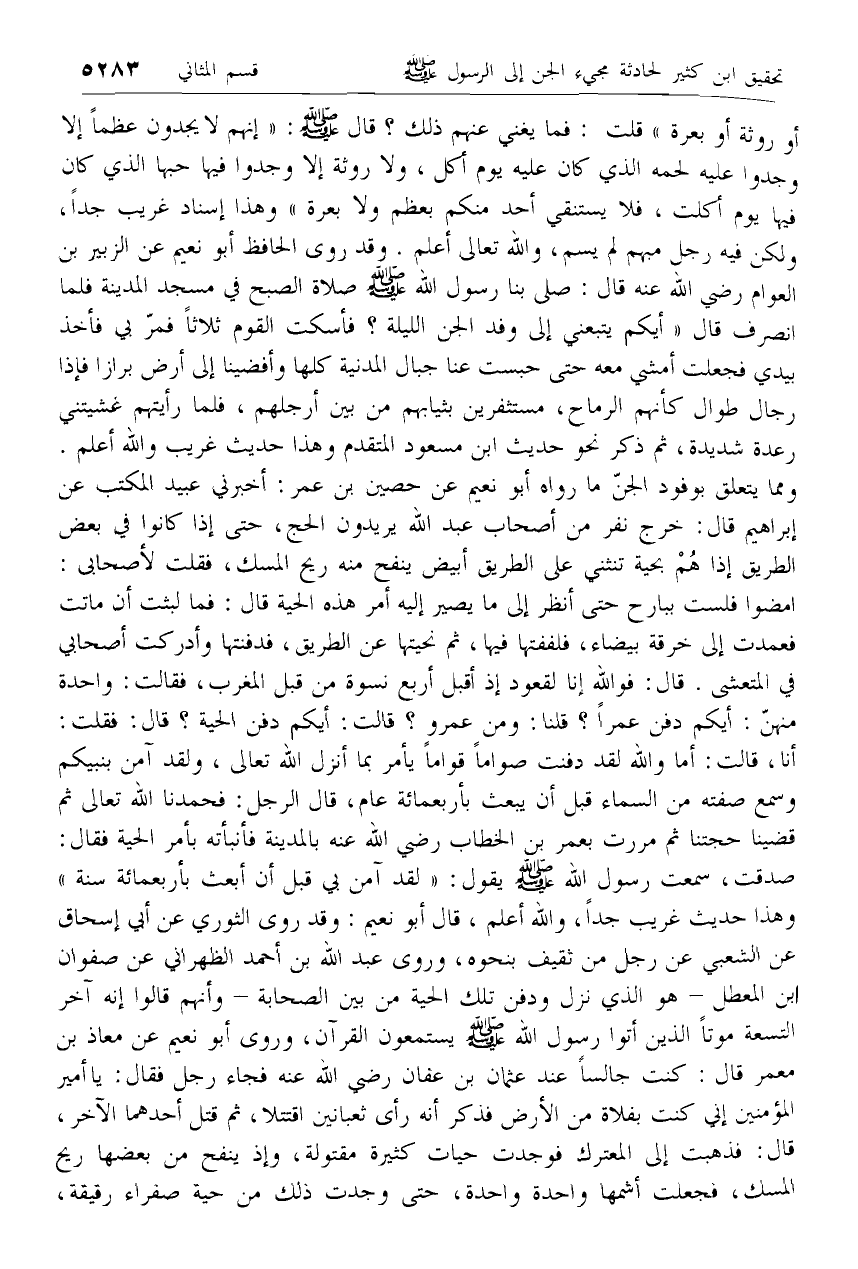 تحقيق ابن كثير لحادثة مجيء الجن إلى الرسول ﷺ قسم المثاني ٥٢٨٣
أو روثة أو بعرة » قلت : فما يغني عنهم ذلك ؟ قال ﷺ : « إنهم لا يجدون عظماً إلا
وجدوا عليه لحمه الذي كان عليه يوم أكل ، ولا روثة إلا وجدوا فيها حبها الذي كان
فيها يوم أكلت ، فلا يستنقي أحد منكم بعظم ولا بعرة » وهذا إسناد غريب جداً ،
ولكن فيه رجل مبهم لم يسم ، والله تعالى أعلم . وقد روى الحافظ أبو نعيم عن الزبير بن
العوام رضي الله عنه قال : صلى بنا رسول الله ﷺ صلاة الصبح في مسجد المدينة فلما
انصرف قال « أيكم يتبعني إلى وفد الجن الليلة ؟ فأسكت القوم ثلاثاً فمرّ بي فأخذ
بيدي فجعلت أمشي معه حتى حبست عنا جبال المدنية كلها وأفضينا إلى أرض برازا فإذا
رجال طوال كأنهم الرماح ، مستثفرين بثيابهم من بين أرجلهم ، فلما رأيتهم غشيتني
رعدة شديدة ، ثم ذكر نحو حديث ابن مسعود المتقدم وهذا حديث غريب والله أعلم .
ومما يتعلق بوفود الجنّ ما رواه أبو نعيم عن حصين بن عمر : أخبرني عبيد المكتب عن
إبراهيم قال : خرج نفر من أصحاب عبد الله يريدون الحج ، حتى إذا كانوا في بعض
الطريق إذا هُمْ بحية تنثني على الطريق أبيض ينفح منه ريح المسك ، فقلت لأصحابى :
امضوا فلست ببارح حتى أنظر إلى ما يصير إليه أمر هذه الحية قال : فما لبثت أن ماتت
فعمدت إلى خرقة بيضاء ، فلففتها فيها ، ثم نحيتها عن الطريق ، فدفنتها وأدركت أصحابي
في المتعشى . قال : فوالله إنا لقعود إذ أقبل أربع نسوة من قبل المغرب ، فقالت : واحدة
منهنّ : أيكم دفن عمراً ؟ قلنا : ومن عمرو ؟ قالت : أيكم دفن الحية ؟ قال : فقلت :
أنا ، قالت : أما والله لقد دفنت صواماً قواماً يأمر بما أنزل الله تعالى ، ولقد آمن بنبيكم
وسمع صفته من السماء قبل أن يبعث بأربعمائة عام ، قال الرجل : فحمدنا الله تعالى ثم
قضينا حجتنا ثم مررت بعمر بن الخطاب رضي الله عنه بالمدينة فأنبأته بأمر الحية فقال :
صدقت ، سمعت رسول الله ﷺ يقول : « لقد آمن بي قبل أن أبعث بأربعمائة سنة »
وهذا حديث غريب جداً ، والله أعلم ، قال أبو نعيم : وقد روى الثوري عن أبي إسحاق
عن الشعبي عن رجل من ثقيف بنحوه ، وروى عبد الله بن أحمد الظهراني عن صفوان
ابن المعطل – هو الذي نزل ودفن تلك الحية من بين الصحابة – وأنهم قالوا إنه آخر
التسعة موتاً الذين أتوا رسول الله ﷺ يستمعون القرآن ، وروى أبو نعيم عن معاذ بن
معمر قال : كنت جالساً عند عثمان بن عفان رضي الله عنه فجاء رجل فقال : ياأمير
المؤمنين إني كنت بفلاة من الأرض فذكر أنه رأى ثعبانين اقتتلا ، ثم قتل أحدهما الآخر ،
قال : فذهبت إلى المعترك فوجدت حيات كثيرة مقتولة ، وإذ ينفح من بعضها ريح
المسك ، فجعلت أشمها واحدة واحدة ، حتى وجدت ذلك من حية صفراء رقيقة ،